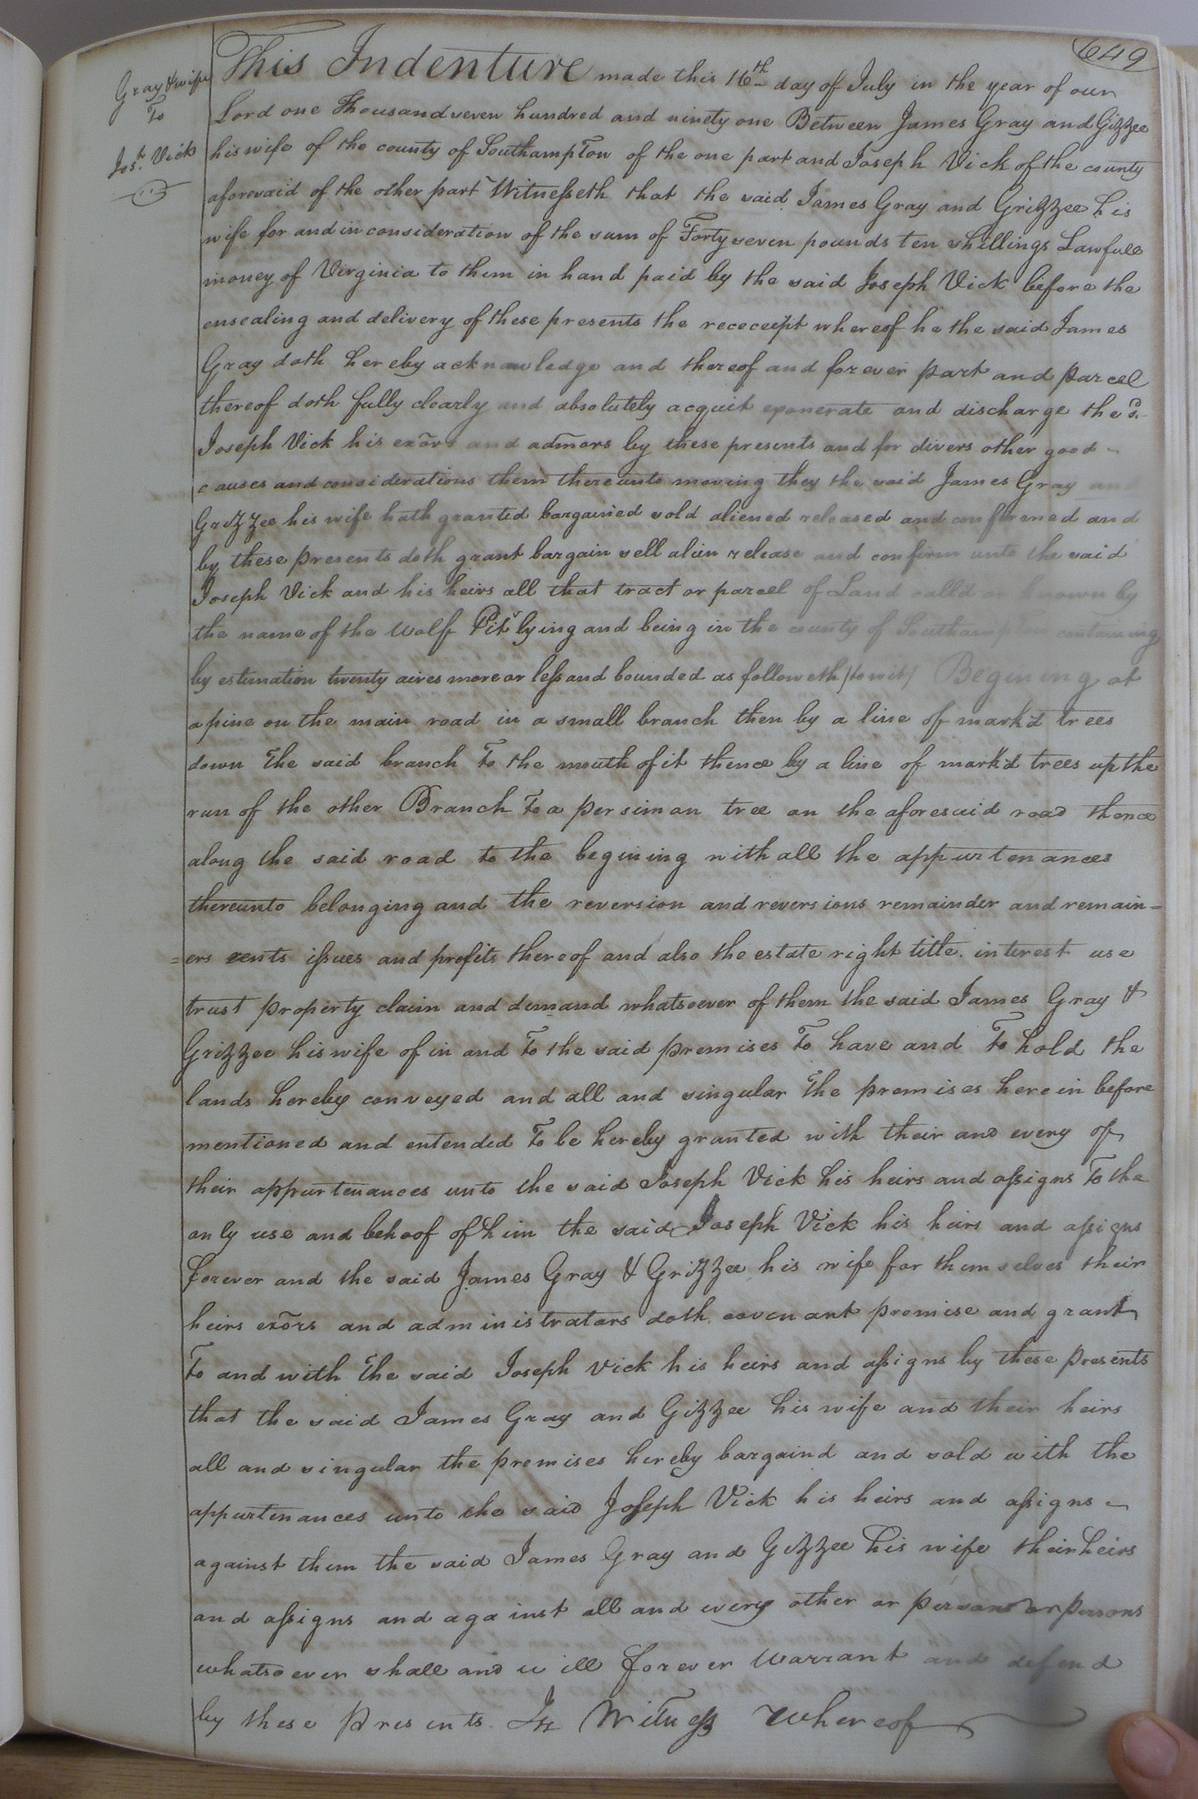 649
Gray & wife
To
Jos. Vick
This Indenture made this 16th day of July in the year of our
Lord one Thousand seven hundred and ninety one Between James Gray and Gizzee
his wife of the county of Southampton of the one part and Joseph Vick of the county
aforesaid of the other part Witnesseth that the said James Gray and Grizzee his
wife for and in consideration of the sum of Forty seven pounds ten shillings Lawfull
money of Virginia to them in hand paid by the said Joseph Vick before the
ensealing and delivery of these presents the receceipt whereof he the said James
Gray doth hereby acknowledge and thereof and forever part and parcel
thereof doth fully clearly and absolutely acquit exonerate and discharge the sd.
Joseph Vick his exors and admors by these presents and for divers other good
causes and considerations them thereunto moving they the said James Gray and
Grizzee his wife hath granted bargained sold aliened released and confirmed and
by these presents doth grant bargain sell alien release and confirm unto the said
Joseph Vick and his heirs all that tract or parcel of Land calld or known by
the name of the Wolf Pit lying and being in the county of Southampton containing
by estimation twenty acres more or less and bounded as followeth (to wit) Begining at
a pine on the main road in a small branch then by a line of mark'd trees
down the said branch To the mouth of it thence by a line of mark'd trees up the
run of the other Branch To a persimon tree on the aforesaid road thence
along the said road to the begining with all the appurtenances
thereunto belonging and the reversion and reversions remainder and remain-
=ers rents issues and profits thereof and also the estate right title interest use
trust property claim and demand whatsoever of them the said James Gray &
Grizzee his wife of in and To the said premises To have and To hold the
lands hereby conveyed and all and singular the premises herein before
mentioned and entended To be hereby granted with their and every of
their appurtenances unto the said Joseph Vick his heirs and assigns To the
only use and behoof of him the said Joseph Vick his heirs and assigns
forever and the said James Gray & Grizzee his wife for themselves their
heirs exors and administrators doth covenant promise and grant
To and with the said Joseph Vick his heirs and assigns by these presents
that the said James Gray and Gizzee his wife and their heirs
all and singular the premises hereby bargaind and sold with the
appurtenances unto the said Joseph Vick his heirs and assigns
against them the said James Gray and Gizzee his wife their heirs
and assigns and against all and every other or person or persons
whatsoever shall and will forever warrant and defend
by these presents In Witness whereof